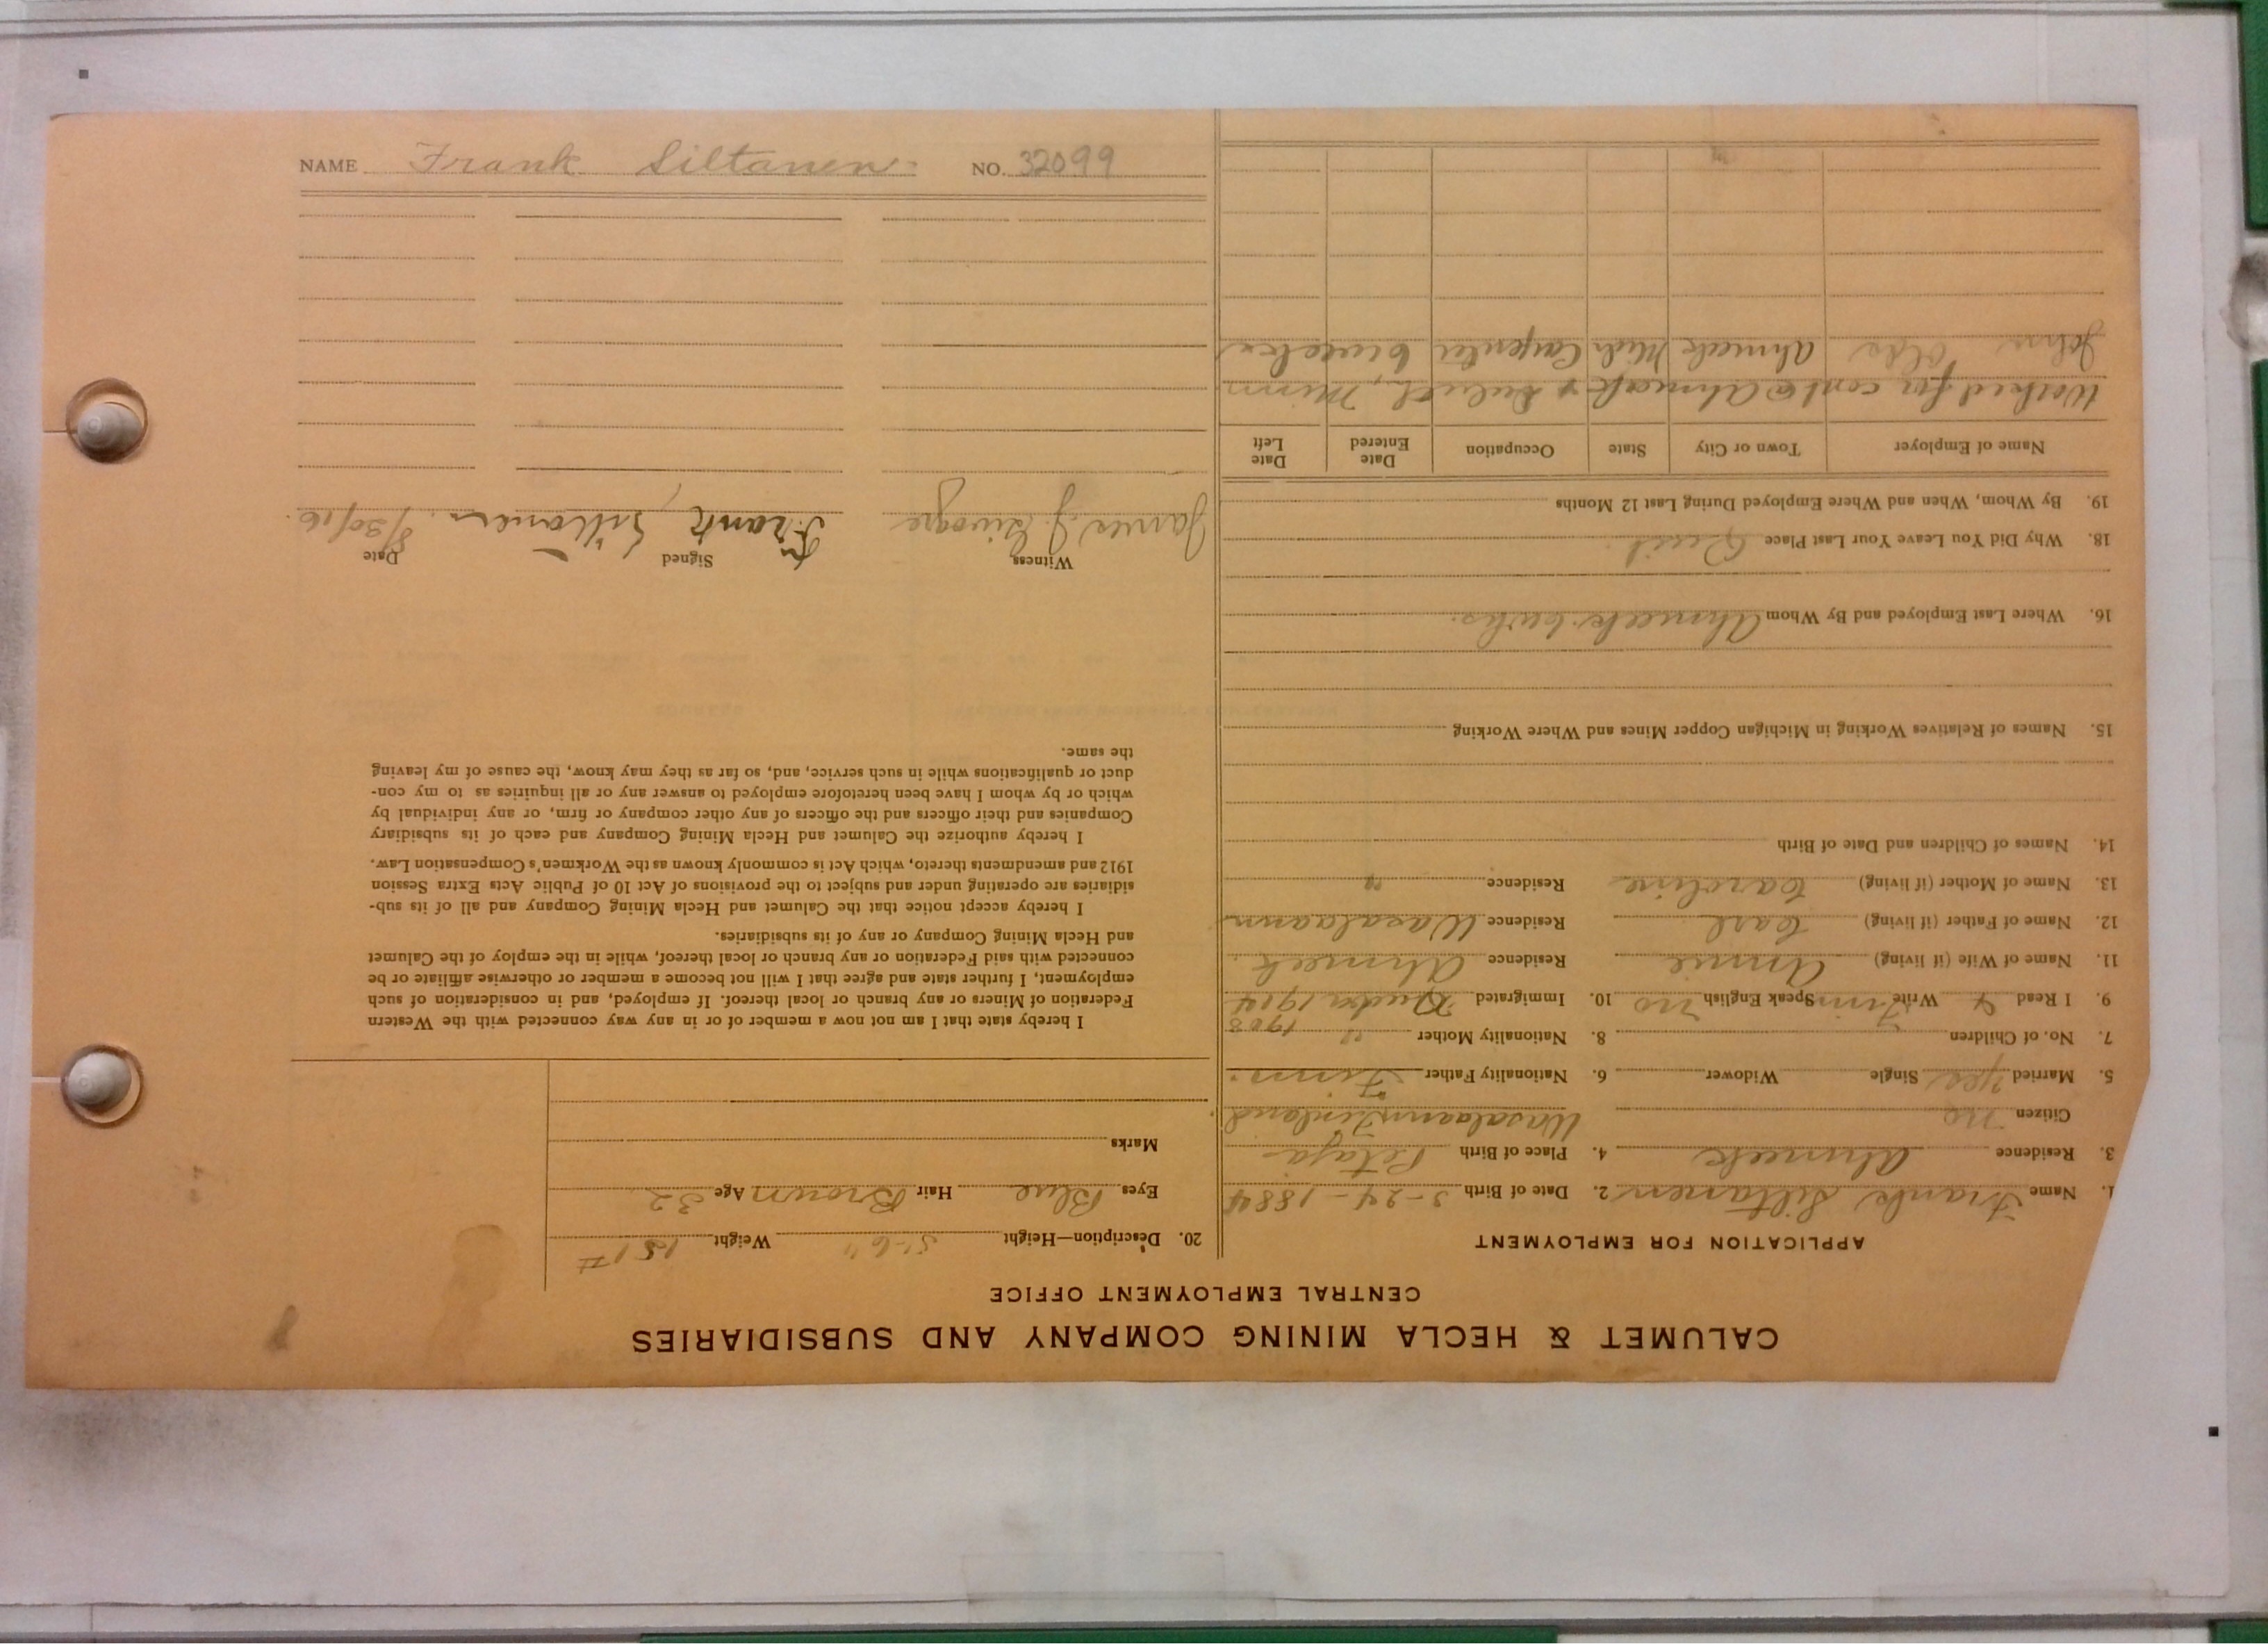 CALUMET & HECLA MINING COMPANY AND SUBSIDIARIES
CENTRAL EMPLOYMENT OFFICE
APPLICATION FOR EMPLOYMENT
1. Name Frank Siltanen 2. Date of Birth 3-24-1884
3. Residence Ahmeek 4. Place of Birth Petaja
Citizen no Wasalaani Finland
5. Married yes Single Widower 6. Nationality Father Finn.
7. No. of Children 8. Nationality Mother " 1908
9. I Read & Write Finn Speak English no 10. Immigrated 1914
11. Name of Wife (if living) Annie Residence Ahmeek
12. Name of Father (if living) Carl Residence Wasalaani
13. Name of Mother (if living) Caroline Residence "
14. Names of Children and Date of Birth
15. Names of Relatives Working in Michigan Copper Mines and Where Working
16. Where Last Employed and By Whom Ahmeek
18. Why Did You Leave Your Last Place Quit.
19. By Whom, When and Where Employed During Last 12 Months
Name of Employer Town or City State Occupation Date Entered Date Left
Worked for cont @ Ahmeek & Duluth, Minn
John Ahmeek Mich Carpenter 6 weeks
20. Description—Height 5'-6" Weight 151#
Eyes Blue Hair Brown Age 32
Marks
I hereby state that I am not now a member of or in any way connected with the Western
Federation of Miners or any branch or local thereof. If employed, and in consideration of such
employment, I further state and agree that I will not become a member or otherwise affiliate or be
connected with said Federation or any branch or local thereof, while in the employ of the Calumet
and Hecla Mining Company or any of its subsidiaries.
I hereby accept notice that the Calumet and Hecla Mining Company and all of its sub-
sidiaries are operating under and subject to the provisions of Act 10 of Public Acts Extra Session
1912 and amendments thereto, which Act is commonly known as the Workmen's Compensation Law.
I hereby authorize the Calumet and Hecla Mining Company and each of its subsidiary
Companies and their officers and the officers of any other company or firm, or any individual by
which or by whom I have been heretofore employed to answer any or all inquiries as to my con-
duct or qualifications while in such service, and, so far as they may know, the cause of my leaving
the same.
Witness Signed Date
James J. Frank Siltanen 8/30/16.
NAME Frank Siltanen NO. 32099